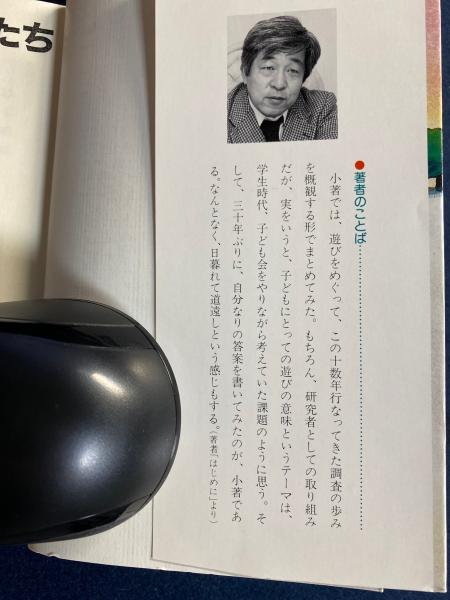 たち
●著者のことば
小著では、遊びをめぐって、この十数年行なってきた調査の歩み
を概観する形でまとめてみた。もちろん、研究者としての取り組み
だが、実をいうと、子どもにとっての遊びの意味というテーマは、
学生時代、子ども会をやりながら考えていた課題のように思う。そ
して、三十年ぶりに、自分なりの答案を書いてみたのが、小著であ
る。なんとなく、日暮れて道遠しという感じもする。(著者「はじめに」より)